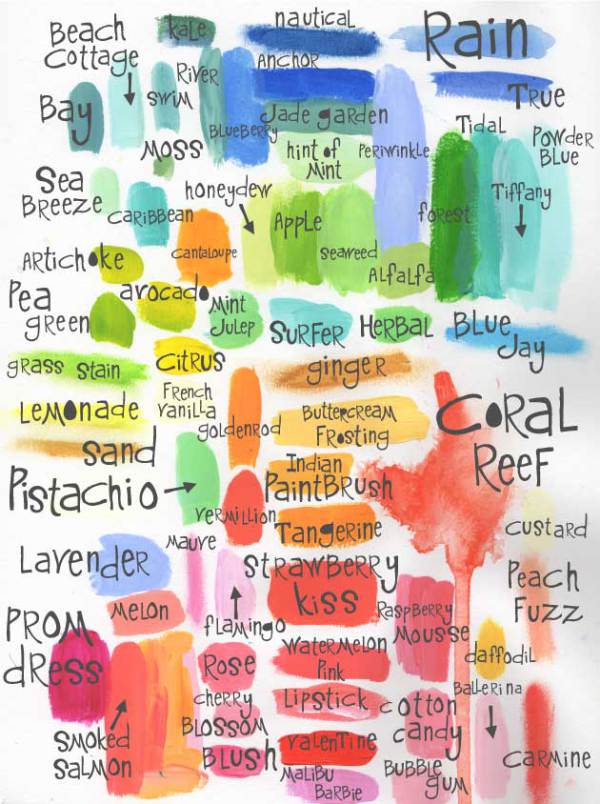 Beach
Cottage
kale
nautical
Rain
River
Anchor
Bay
Swim
True
Blueberry
Jade garden
Tidal
Powder
Blue
Moss
hint of
Mint
Periwinkle
Sea
Breeze
honeydew
Tiffany
Caribbean
Apple
forest
Artichoke
Cantaloupe
Seaweed
Alfalfa
Pea
green
avocado
Mint
Julep
Surfer
Herbal
Blue
Jay
grass stain
Citrus
ginger
Lemonade
French
Vanilla
goldenrod
Buttercream
Frosting
Coral
Reef
Sand
Indian
Paintbrush
Pistachio
Vermillion
Tangerine
custard
Mauve
Lavender
Strawberry
kiss
Peach
Fuzz
Melon
flamingo
Raspberry
Mousse
Prom
dress
Rose
Watermelon
Pink
daffodil
cherry
Blossom
Lipstick
cotton
candy
Ballerina
Smoked
Salmon
Blush
Valentine
Carmine
Malibu
Barbie
Bubble
gum